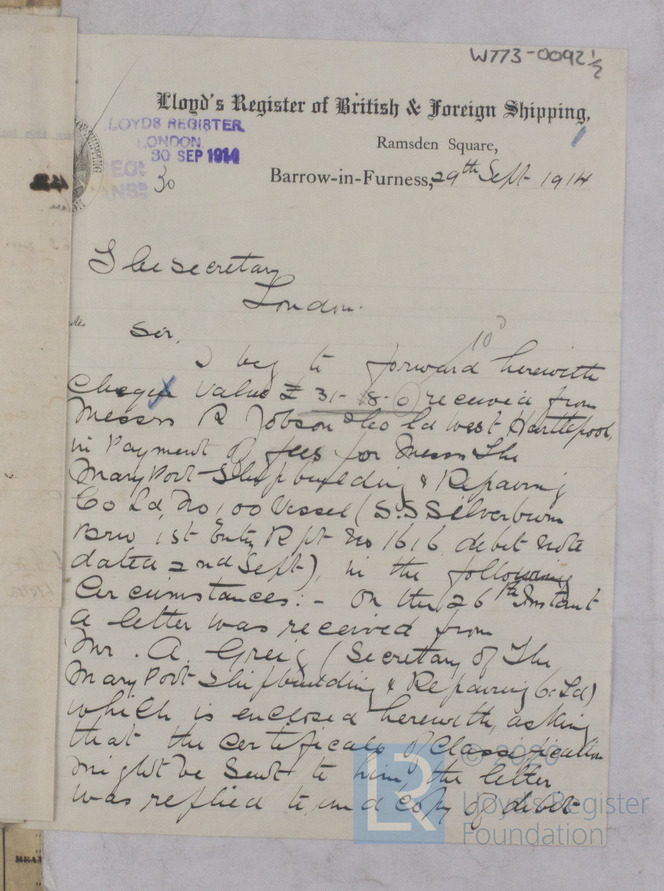 W773-0092 1/2
Lloyd's Register of British & Foreign Shipping,
LOYDS REGISTER
LONDON
30 SEP 1914
30
Ramsden Square,
Barrow-in-Furness, 29th Sept 1914
The Secretary
London.
Sir,
10
I beg to forward herewith
cheque value £31-18-0 received from
Messrs R Jobson & Co Ld West Hartlepool,
in Payment of fees for Messrs The
MaryPort Shipbuilding & Repairing
Co Ld, No 100 Vessel (S.S Silverburn
Brw 1st Entry Rpt No 1616 debit note
dated 2nd Sept), in the following
Circumstances:- On the 26th Instant
a letter was received from
Mr. A. Greig (Secretary of The
MaryPort Shipbuilding & Repairing Co Ld)
which is enclosed herewith, asking
that the Certificate of Classification
might be sent to him, the letter
was replied to, and copy of debit
© 2020
LR
Lloyd's Register
Foundation